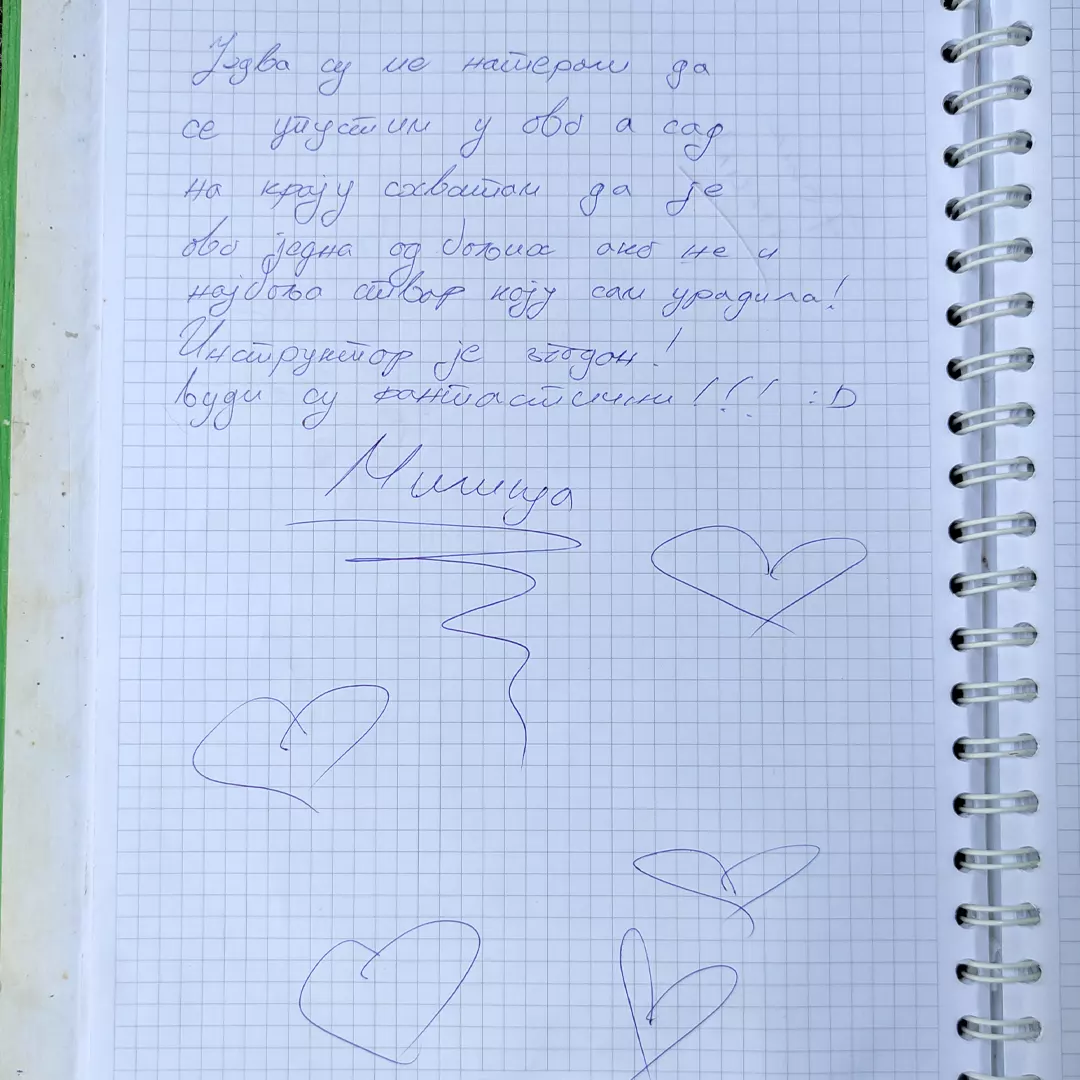 Једва су ме натерали да
се упустим у ово а сад
на крају схватам да је
ово једна од бољих ако не и
најбоља ствар коју сам урадила!
Инструктор је згодан!
Људи су фантастични!!! :D
Милица